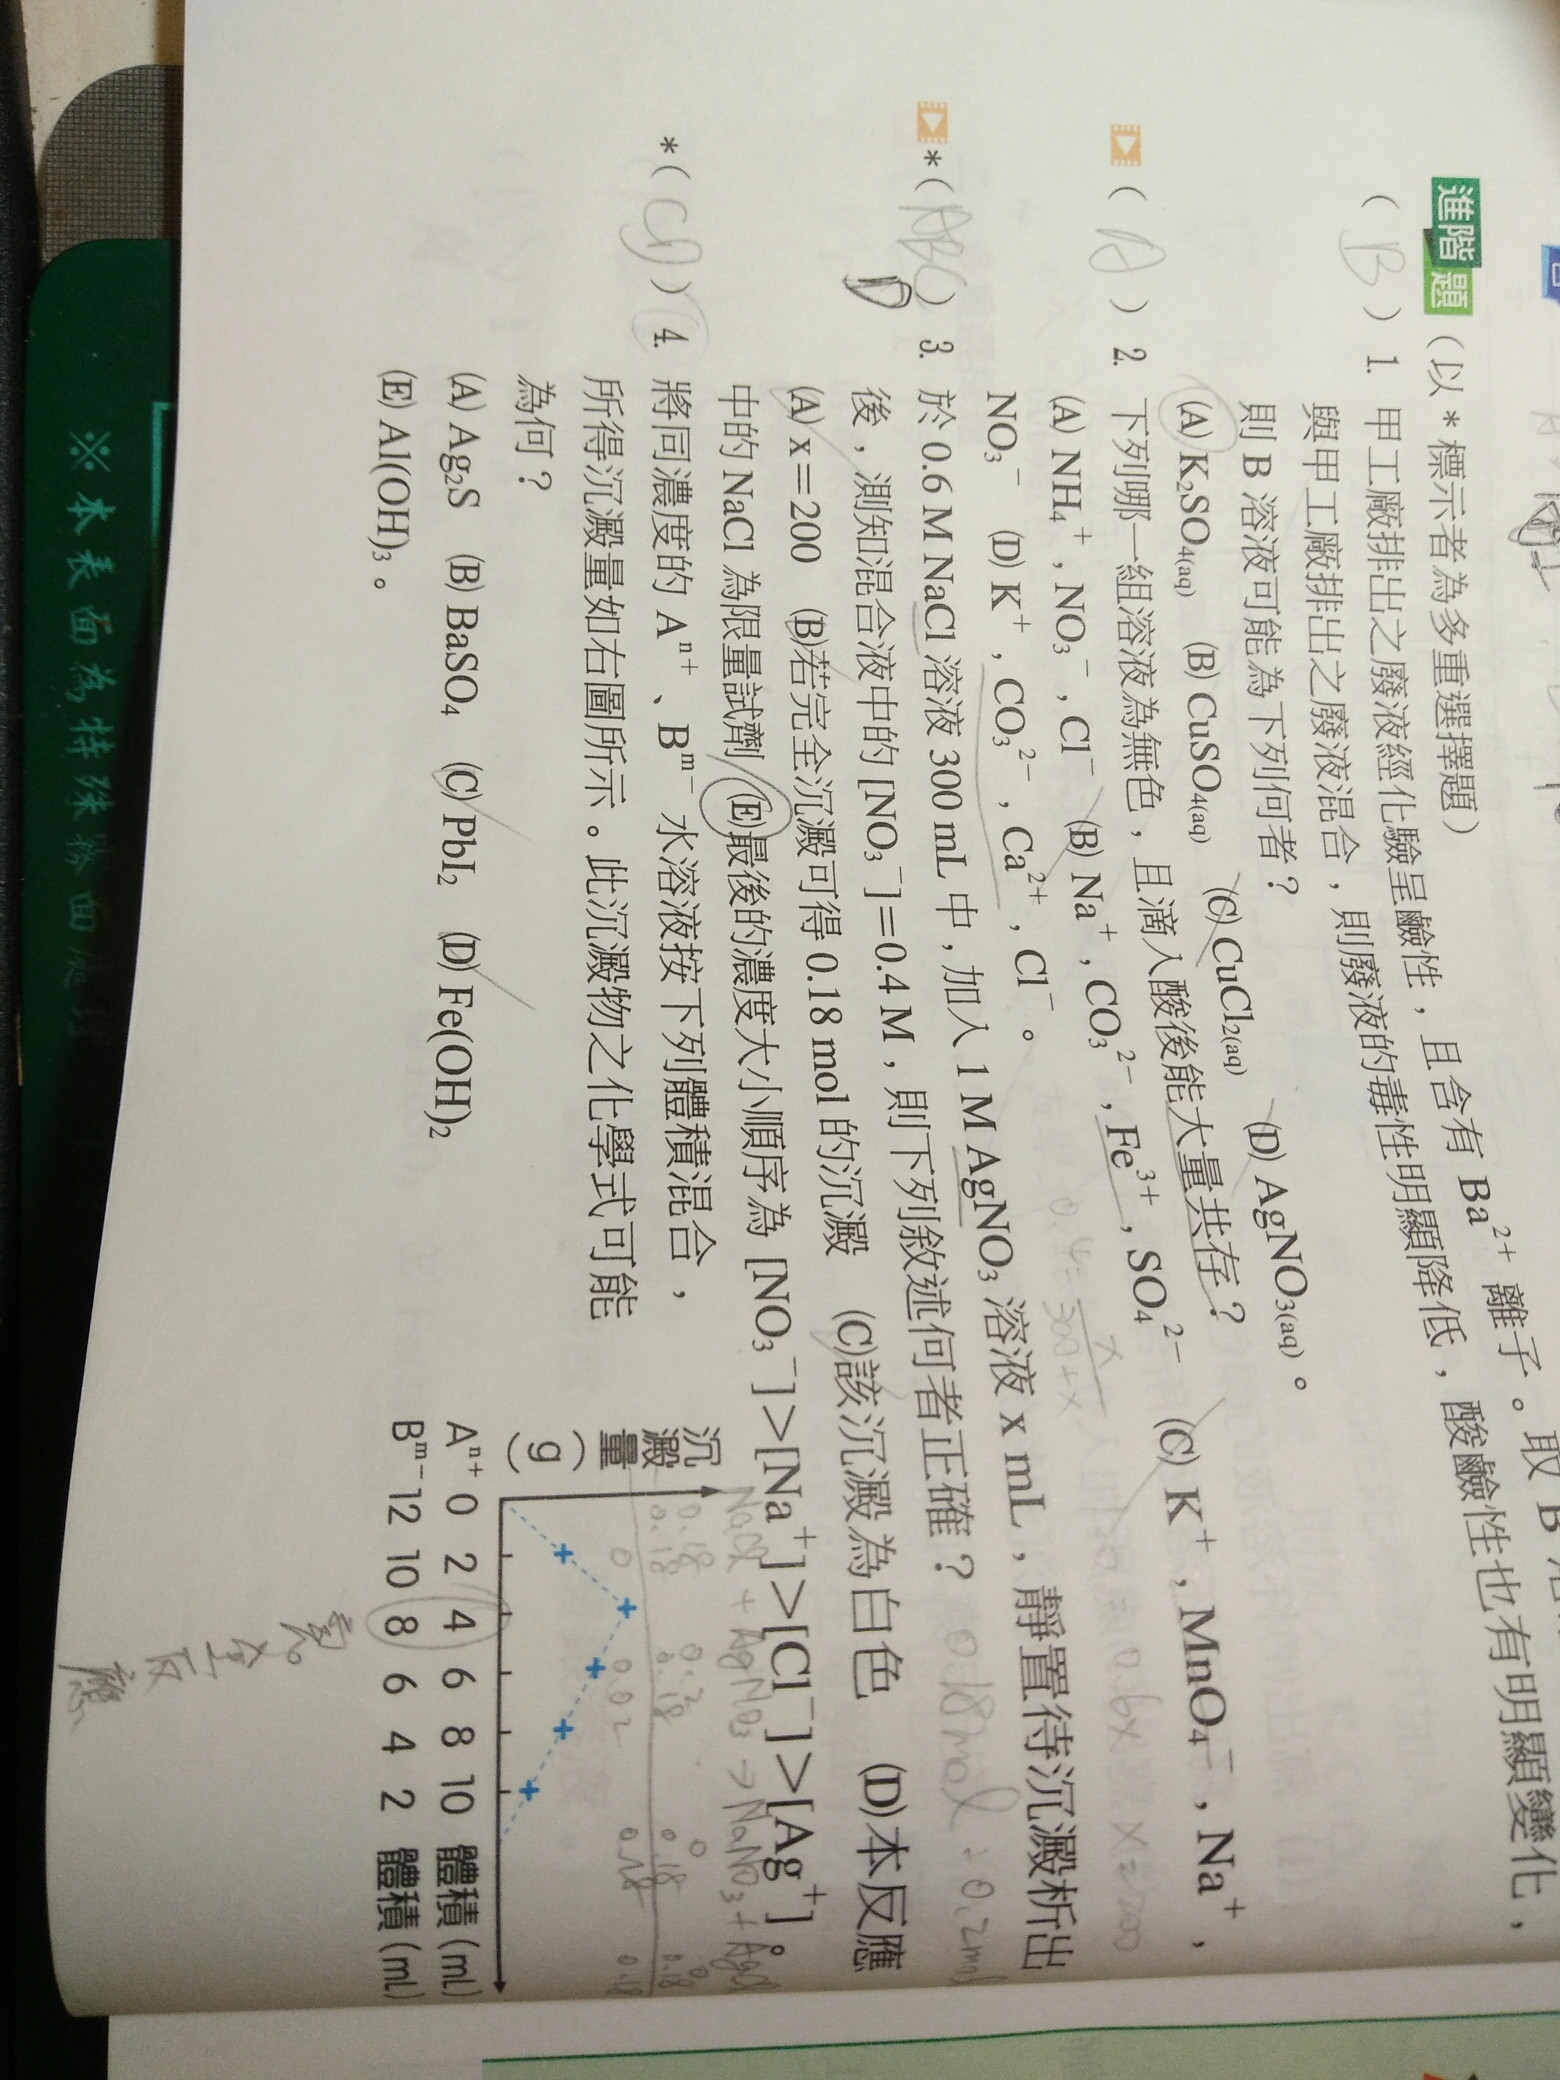 進階題（以 * 標示者為多重選擇題）
( B ) 1. 甲工廠排出之廢液經化驗呈鹼性，且含有 Ba²⁺ 離子。取 B
與甲工廠排出之廢液混合，則廢液的毒性明顯降低，酸鹼性也有明顯變化，
則 B 溶液可能為下列何者？
(A) K₂SO₄(aq) (B) CuSO₄(aq) (C) CuCl₂(aq) (D) AgNO₃(aq)。
( A ) 2. 下列哪一組溶液為無色，且滴入酸後能大量共存？
(A) NH₄⁺，NO₃⁻，Cl⁻ (B) Na⁺，CO₃²⁻，Fe³⁺，SO₄²⁻ (C) K⁺，MnO₄⁻，Na⁺，
NO₃⁻ (D) K⁺，CO₃²⁻，Ca²⁺，Cl⁻。
0.4=x/300+x
0.6x
x=200
*( ABC D ) 3. 於 0.6 M NaCl 溶液 300 mL 中，加入 1 M AgNO₃ 溶液 x mL，靜置待沉澱析出
後，測知混合液中的 [NO₃⁻]=0.4 M，則下列敘述何者正確？
0.18mol
0.2mol
(A) x=200 (B)若完全沉澱可得 0.18 mol 的沉澱 (C)該沉澱為白色 (D)本反應
中的 NaCl 為限量試劑 (E)最後的濃度大小順序為 [NO₃⁻]>[Na⁺]>[Cl⁻]>[Ag⁺]。
NaCl + AgNO₃ → NaNO₃ + AgCl
0.18 0.2 0 0
0.18 0.18 0.18 0.18
0 0.02 0.18 0.18
*( CD ) 4. 將同濃度的 Aⁿ⁺、Bᵐ⁻ 水溶液按下列體積混合，
所得沉澱量如右圖所示。此沉澱物之化學式可能
為何？
(A) Ag₂S (B) BaSO₄ (C) PbI₂ (D) Fe(OH)₂
(E) Al(OH)₃。
沉澱量(g)
Aⁿ⁺ 0 2 4 6 8 10 體積 (mL)
Bᵐ⁻ 12 10 8 6 4 2 體積 (mL)
完全反應
※本表面為特殊霧面處理